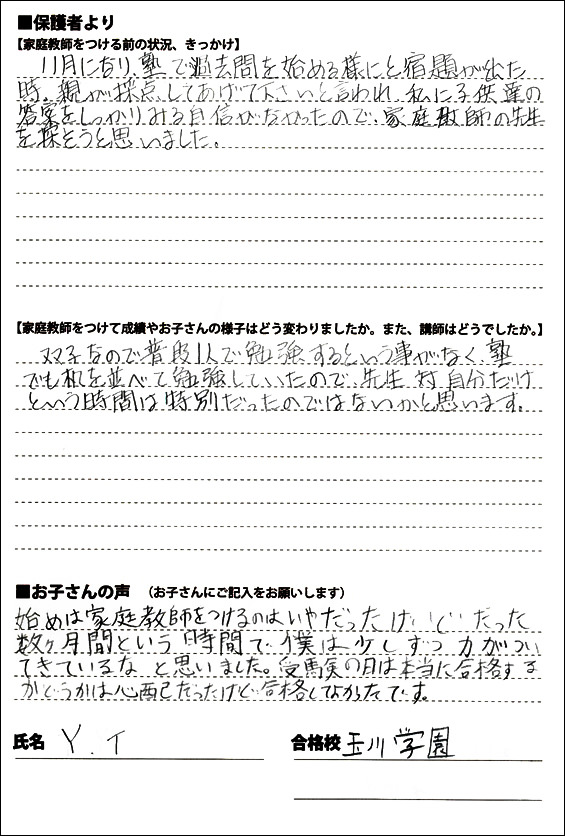 ■保護者より
【家庭教師をつける前の状況、きっかけ】
11月になり、塾で過去問を始める様にと宿題が出た
時、親が採点してあげて下さいと言われ、私に子供達の
答案をしっかりみる自信がなかったので、家庭教師の先生
を探そうと思いました。
【家庭教師をつけて成績やお子さんの様子はどう変わりましたか。また、講師はどうでしたか。】
双子なので普段1人で勉強するという事がなく、塾
でも机を並べて勉強していたので、先生 対 自分だけ
という時間は特別だったのではないかと思います。
■お子さんの声 (お子さんにご記入をお願いします)
始めは家庭教師をつけるのはいやだったけど だった
数ヶ月間という時間で僕は少しずつ力がつい
てきているなと思いました。受験の日は本当に合格する
かどうかは心配だったけど合格してよかったです。
氏名 Y.T
合格校 玉川学園